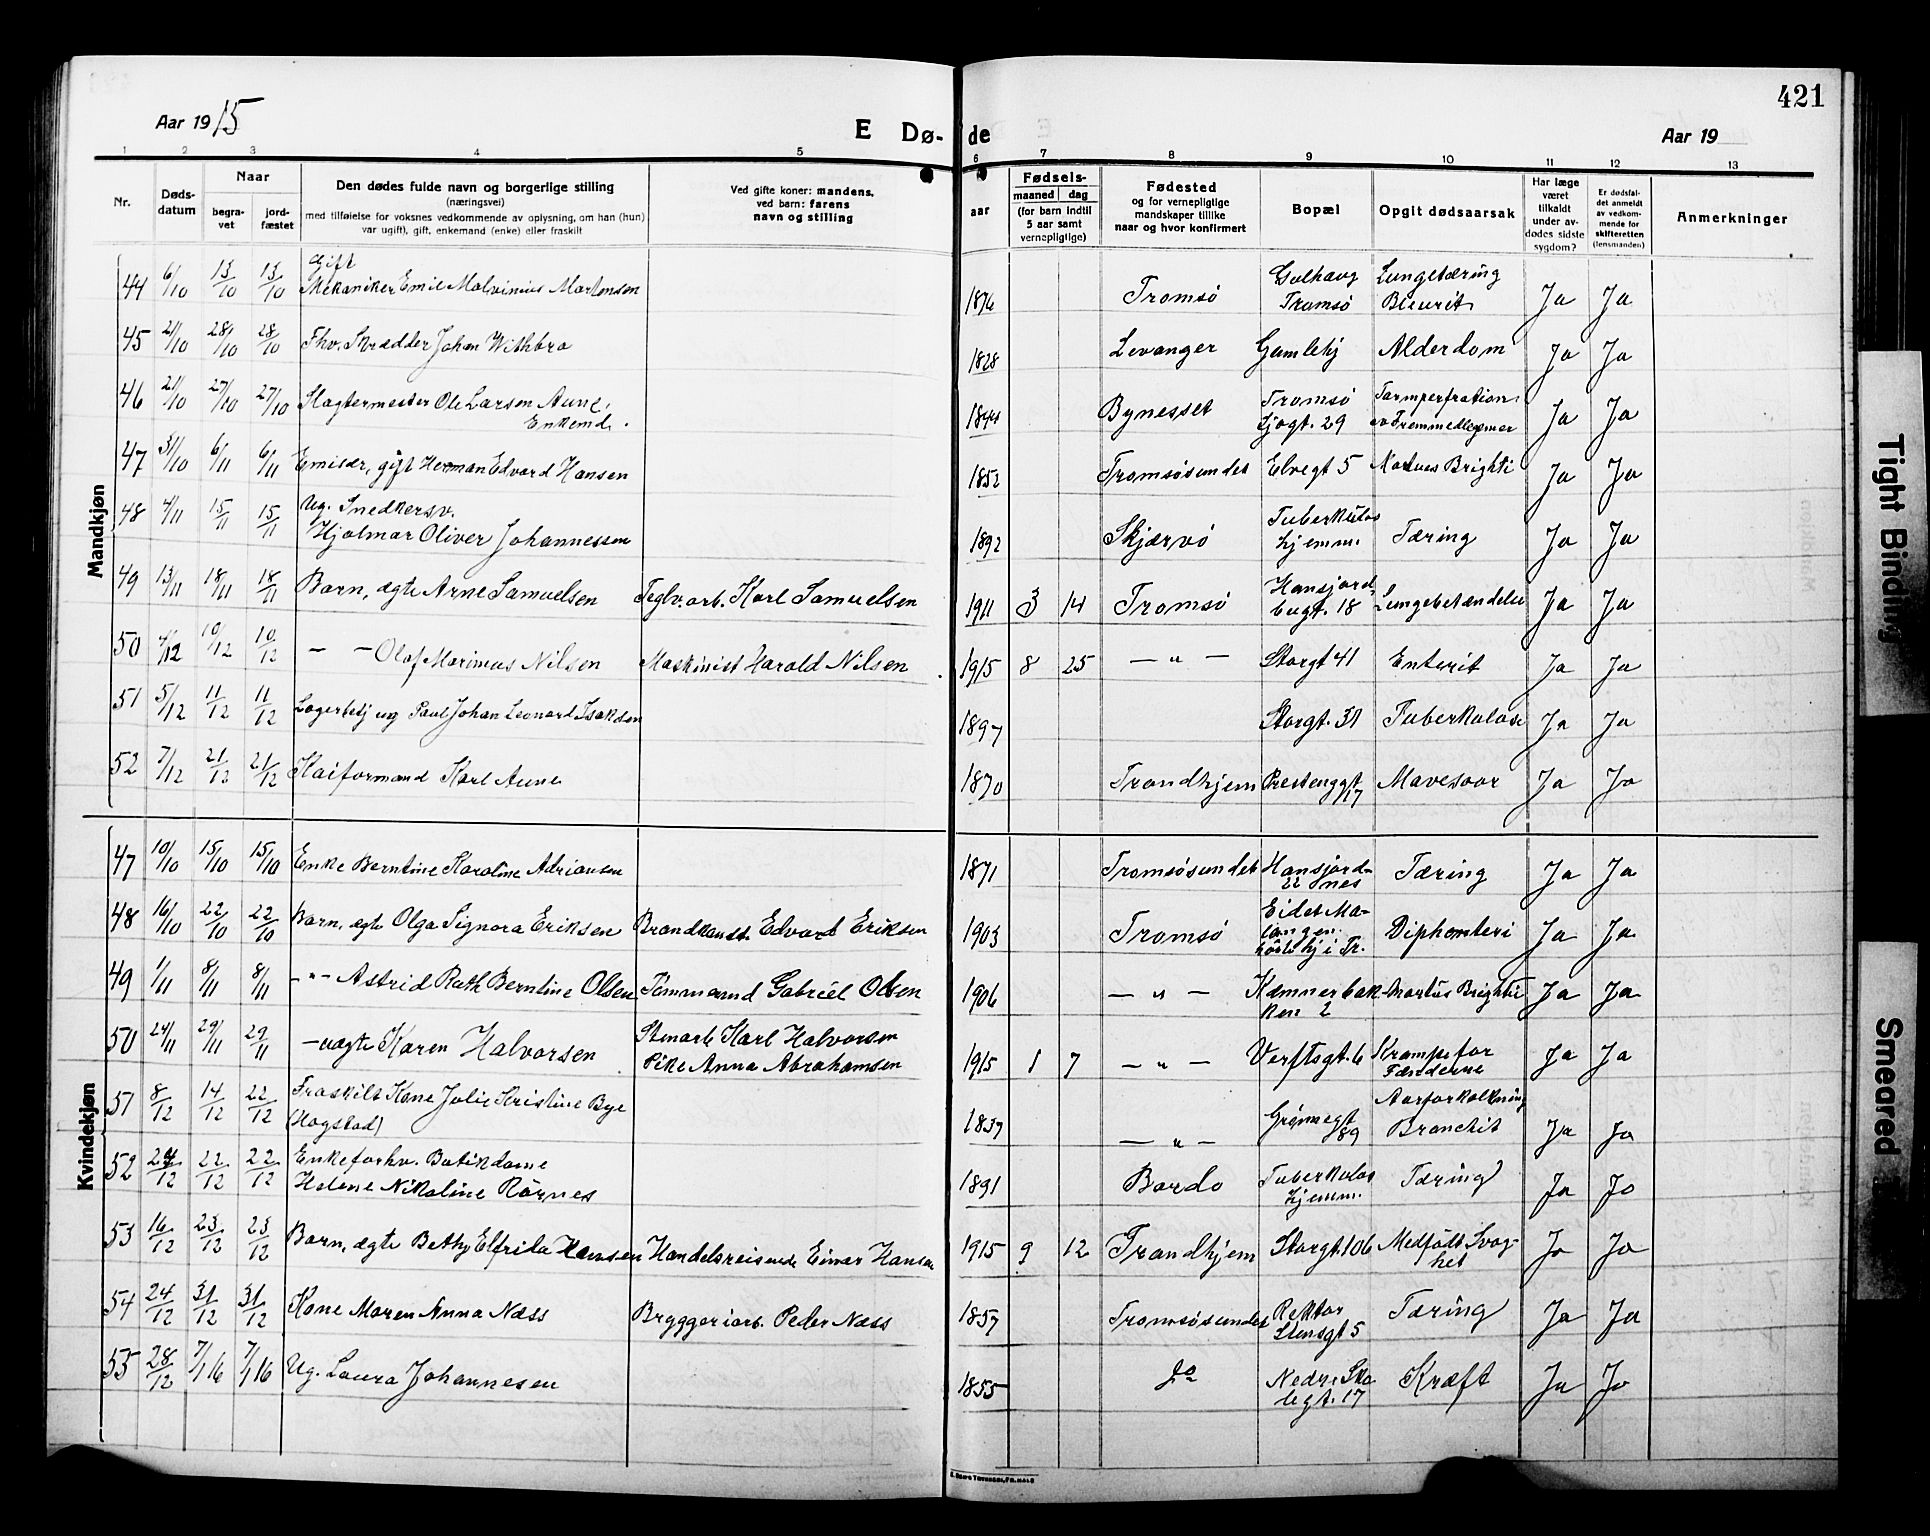 421
Aar 1915
E Dø-
de
Aar 19
1 2 3 4 5 6 7 8 9 10 11 12 13
Nr.
Døds-
datum
Naar
begra-
vet
jord-
fæstet
Den dødes fulde navn og borgerlige stilling
(næringsvei)
med tilføielse for voksnes vedkommende av oplysning, om han (hun)
var ugift), gift, enkemand (enke) eller fraskilt
Ved gifte koner: mandens,
ved barn: farens
navn og stilling
aar
Fødsels-
maaned dag
(for barn indtil
5 aar samt
vernepligtige)
Fødested
og for vernepligtige
mandskaper tillike
naar og hvor konfirmert
Bopæl
Opgit dødsaarsak
Har læge
været
tilkaldt
under av-
dødes sidste
sygdom?
Er dødsfal-
det anmeldt
av vedkom-
mende for
skifteretten
(lensmanden)
Anmerkninger
Mandkjøn
44 6/10 13/10 13/10 Gift
Mekaniker Emil Malvinius Martensen 1876 Tromsø Solhaug Tromsø Lungetæring Pleurit Ja Ja
45 21/10 28/10 28/10 Fhv. Skrædder Johan Withbro 1828 Levanger Gamlehj Alderdom Ja Ja
46 21/10 27/10 27/10 Slagtermester Ole Larsen Aune,
Enkemd. 1844 Bynesset Tromsø Sjøgt. 29 Tarmperfration av Fremmedlegemer Ja Ja
47 31/10 6/11 6/11 Emisær, gift Herman Edvard Hansen 1852 Tromsøsundet Elvegt 5 Morbus Brighti Ja Ja
48 4/11 15/11 15/11 Ug. Snedkersv.
Hjalmar Oliver Johannessen 1892 Skjærvø Tuberkulos hjemm. Tæring Ja Ja
49 13/11 18/11 18/11 Barn, ægte Arne Samuelsen Teglv.arb. Karl Samuelsen 1911 3 14 Tromsø Hansjord bugt. 18 Lungebetændelse Ja Ja
50 4/12 10/12 10/12 — — Olaf Marinius Nilsen Maskinist Harald Nilsen 1915 8 25 — " — Storgt 41 Enterit Ja Ja
51 5/12 11/12 11/12 Lagerbetj ug Paul Johan Leonard Isaksen 1897 Storgt. 31 Tuberkulose Ja Ja
52 7/12 21/12 21/12 Kaiformand Karl Aune 1870 Trondhjem Prestenggt 17 Mavesaar Ja Ja
Kvindekjøn
47 10/10 15/10 15/10 Enke Berntine Karoline Adriansen 1871 Tromsøsundet Hansjord- 22 nes Tæring Ja Ja
48 16/10 22/10 22/10 Barn, ægte Olga Signora Eriksen Brandkonst. Edvard Eriksen 1903 Tromsø Eidet Ma- langen. hj i Tr. Diphenteri Ja Ja
49 1/11 8/11 8/11 — " — Astrid Ruth Berntine Olsen Tømmermd Gabriel Olsen 1906 — " — Kæmnerbak- ken 2 Morbus Brighti Ja Ja
50 24/11 29/11 29/11 — uægte Karen Halvorsen Stenarb Karl Halvorsen
Pike Anna Abrahamsen 1915 1 7 — " — Verftsgt. 6 Krampe for Tænderne Ja Ja
51 8/12 14/12 22/12 Fraskilt Kone Julie Kristine Bye
(Hogstad) 1837 — " — Grønnegt 89 Aarforkalkning Bronchit Ja Ja
52 /12 22/12 22/12 Enke forhv. Butikdame
Helene Nikoline Rørnes 1891 Bardo Tuberkulos hjemm. Tæring Ja Ja
53 16/12 23/12 23/12 Barn, ægte Bethy Elfrida Hansen Handelsreisende Einar Hansen 1915 9 12 Trondhjem Storgt. 106 Medfødt Svag- het Ja Ja
54 24/12 31/12 31/12 Kone Maren Anna Næss Bryggeriarb. Peder Næss 1857 Tromsøsundet Rektor Stensgt 5 Tæring Ja Ja
55 28/12 7/1 16 7/1 16 Ug. Laura Johannesen 1855 do Nedre Ska- legt. 17 Kræft Ja Ja
Tight Binding
Smeared